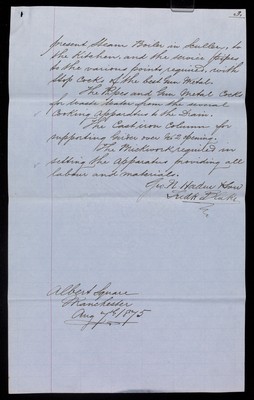 3.
present Steam Boiler in Scullery, to
the Kitchen, and the service pipes
to the various points required, with
Stop Cocks of the best Gun Metal.
The Pipes and Gun Metal Cocks
for waste Water from the several
Cooking apparatus to the Drain.
The Cast iron Column for
supporting Girder over opening.
The Brickwork required in
setting the Apparatus providing all
labour and materials.
Geo. N. Haden & Son
Albert Square
Manchester
Aug 7th 1875